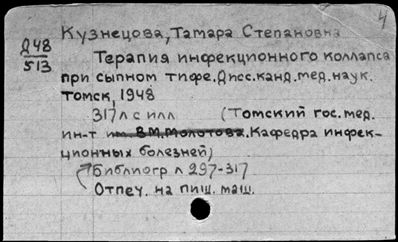 4
Кузнецова, Тамара Степановна
Д48
513
Терапия инфекционного коллапса
при сыпном тифе. Дисс. канд. мед. наук.
Томск, 1948
317 л с илл (Томский гос. мед.
ин-т им. В.М. Молотова. Кафедра инфек-
ционных болезней)
Библиогр л 297-317
Отпеч. на пиш. маш.